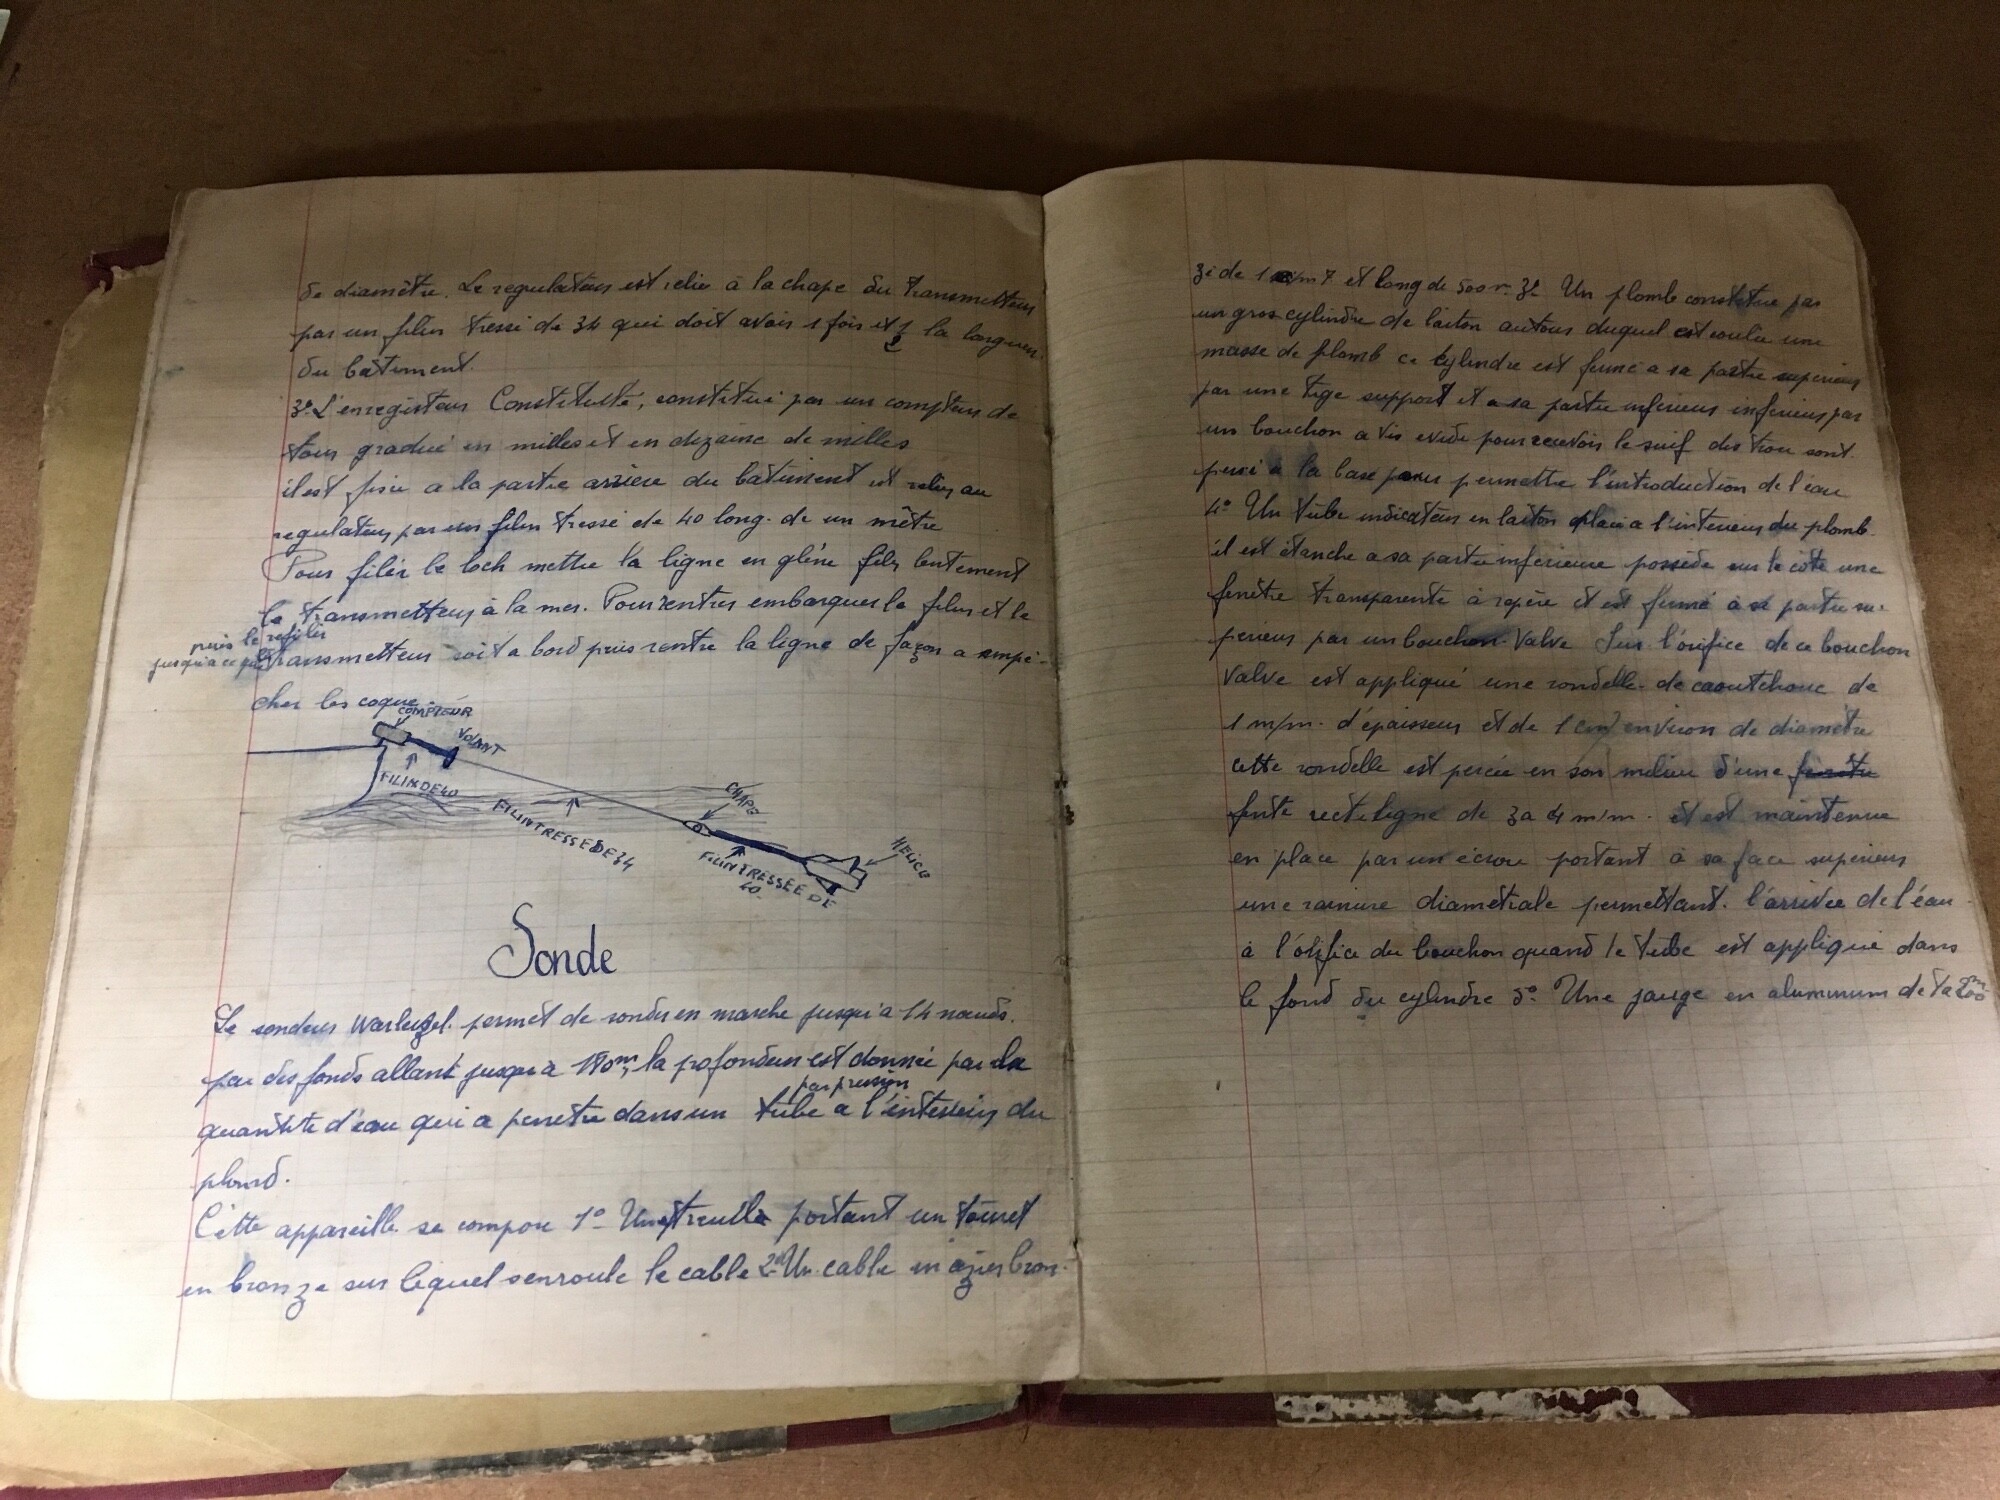 de diamètre. Le regulateur est relie à la chape du transmetteur
par un filin tressé de 34 qui doit avoir 1 fois et 1/2 la longueur
du batiment.
3º L'enregistreur Constitué, constitué par un compteur de
tour gradué en milles et en dizaine de milles
il est fixé a la partie arrière du batiment et relier au
regulateur par un filin tressé de 40 long. de un mètre
Pour filer le loch mettre la ligne en glène filer lentement
le transmetteur à la mer. Pour rentrer embarquer le filin et le
puis le refiler
jusqu'a ce que
transmetteur soit a bord puis rentre la ligne de façon a empê-
cher les coque
COMPTEUR
VOLANT
FILIN DE 40
FILIN TRESSE DE 34
CHAPE
HELICE
FILIN TRESSEE DE
40
Sonde
Le sondeur Warluzel. permet de sonder en marche jusqu'à 14 nœuds.
par des fonds allant jusqu'à 180m, la profondeur est donnée par la
par pression
quantite d'eau qui a penetre dans un tube a l'interieur du
plomb.
Cette appareille se compose 1º Un treuil portant un touret
en bronze sur lequel senroule le cable 2º Un cable en azier bron-
zé de 1 m/m 7 et long de 500 m 3º Un plomb constitue par
un gros cylindre de laiton autour duquel est coulée une
masse de plomb ce cylindre est fermé a sa partie superieur
par une tige support et a sa partie inferieur inferieur par
un bouchon a vis evidé pour recevoir le suif des trou sont
percé à la base pour permettre l'introduction de l'eau
4º Un tube indicateur en laiton placé a l'interieur du plomb.
il est étanche a sa partie inferieure possède sur le coté une
fenêtre transparente à repère et est fermé à sa partie su-
perieur par un bouchon-valve Sur l'orifice de ce bouchon
valve est appliqué une rondelle de caoutchouc de
1 m/m d'épaisseur et de 1 cm environ de diametre
cette rondelle est percée en son milieu d'une fenêtre
fente rectiligne de 3 a 4 m/m. et est maintenue
en place par un écrou portant à sa face superieur
une rainure diamétrale permettant l'arrivée de l'éau
à l'orifice du bouchon quand le tube est appliqué dans
le fond du cylindre 5º Une jauge en aluminium de 1 a 200m